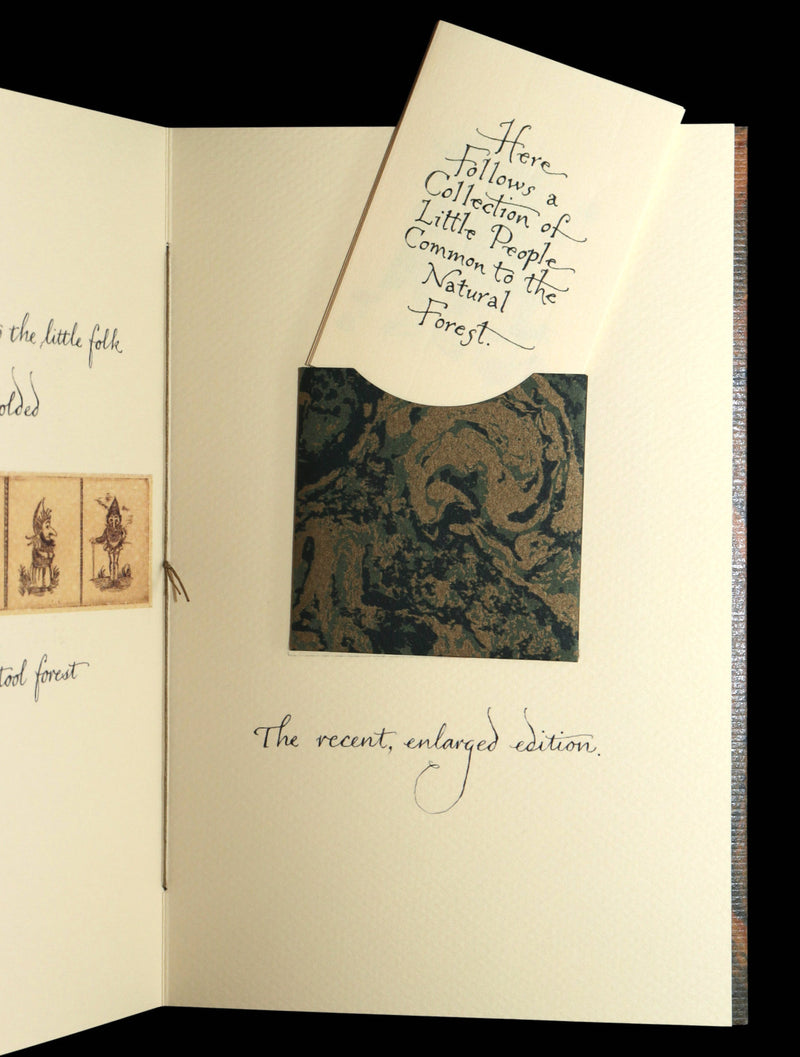 the little folk
olded
tool forest
Here
Follows a
Collection of
Little People
Common to the
Natural
Forest.
The recent, enlarged edition.